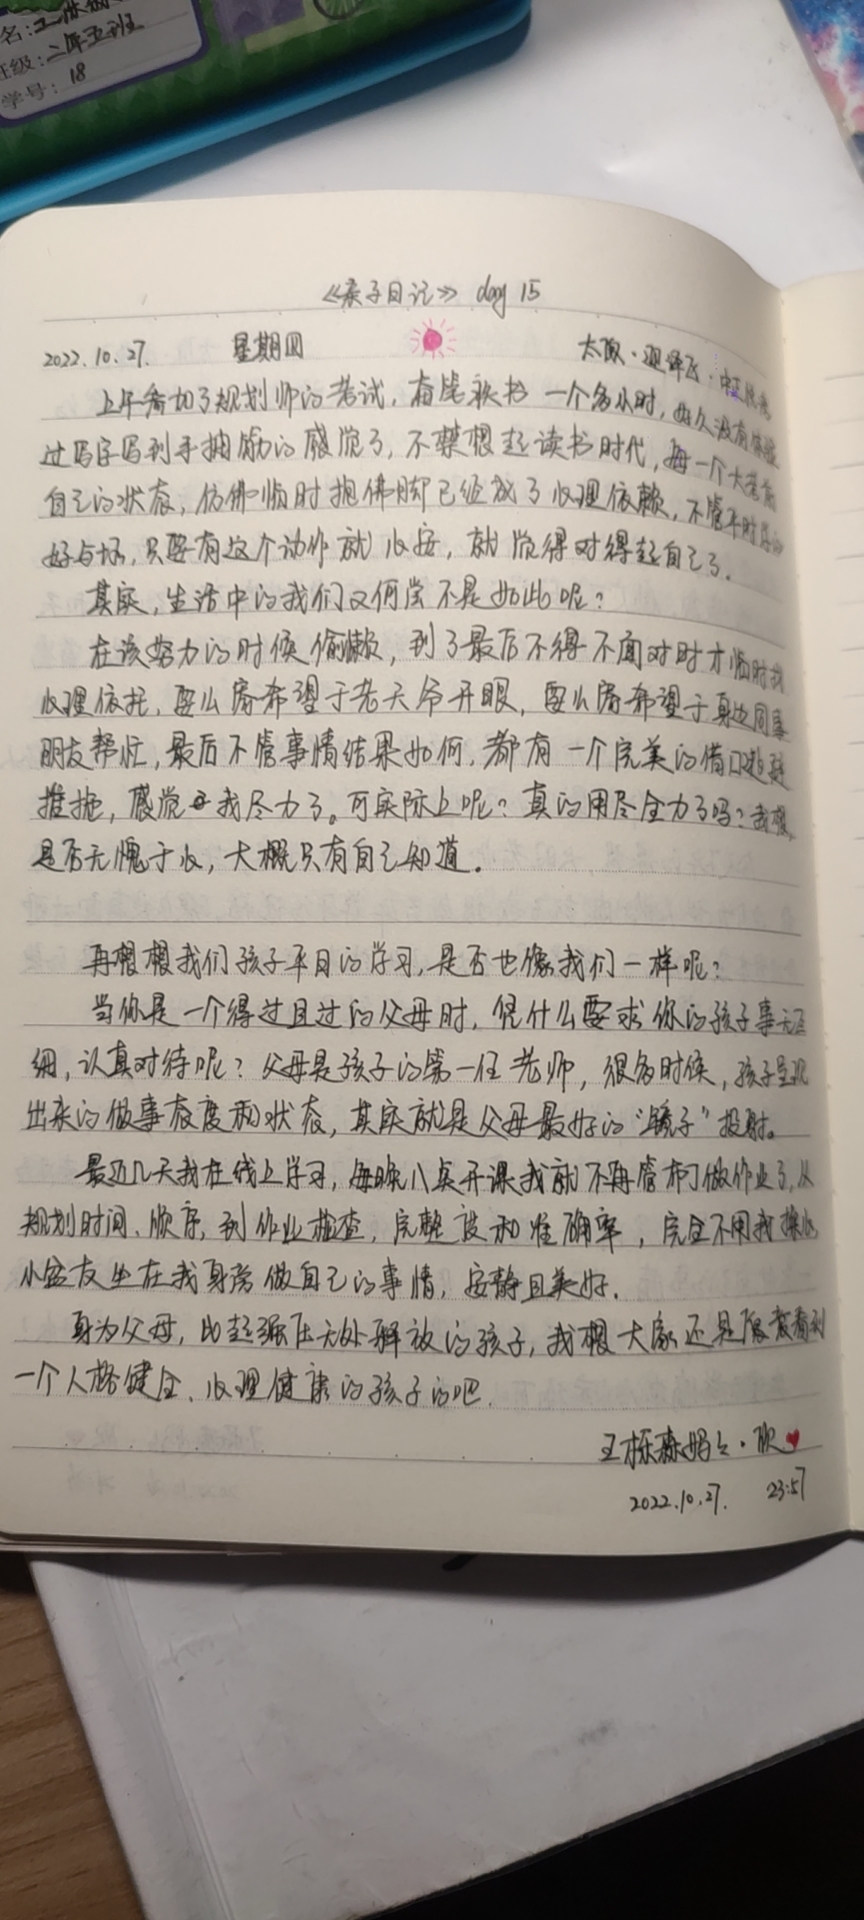 名:王
班级:二年五班
学号:18
《亲子日记》 day 15
2022.10.27. 星期四 太原
上午参加了规划师的考试,奋笔疾书 一个多小时,好久没有体验
过写字写到手抽筋的感觉了,不禁想起读书时代,每一个大考前
自己的状态,仿佛临时抱佛脚已经成了心理依赖,不管平时学的
好与坏,只要有这个动作就心安,就觉得对得起自己了。
其实,生活中的我们又何尝不是如此呢?
在该努力的时候偷懒,到了最后不得不面对时才临时找
心理依托,要么寄希望于老天爷开眼,要么寄希望于身边同事
朋友帮忙,最后不管事情结果如何,都有一个完美的借口
推拖,感觉我尽力了。可实际上呢?真的用尽全力了吗?我想,
是否无愧于心,大概只有自己知道。
再想想我们孩子平日的学习,是否也像我们一样呢?
当你是一个得过且过的父母时,凭什么要求你的孩子事无巨
细,认真对待呢?父母是孩子的第一任老师,很多时候,孩子呈现
出来的做事态度和状态,其实就是父母最好的“镜子”投射。
最近几天我在线上学习,每晚八点开课我就不再管布丁做作业了,从
规划时间、顺序,到作业检查,完整度和准确率,完全不用我操心,
小盆友坐在我身旁做自己的事情,安静且美好。
身为父母,比起强压无处解放的孩子,我想大家还是很喜看到
一个人格健全、心理健康的孩子的吧.
王栎森妈妈·欣
2022.10.27. 23:57